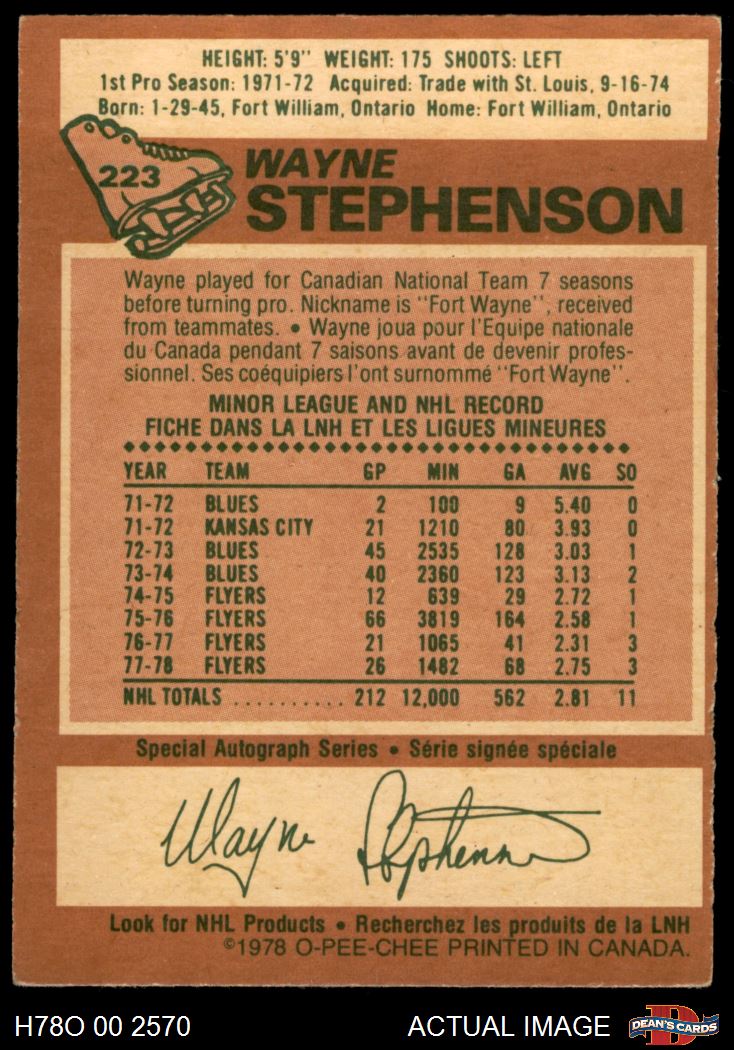 HEIGHT: 5'9" WEIGHT: 175 SHOOTS: LEFT
1st Pro Season: 1971-72 Acquired: Trade with St. Louis, 9-16-74
Born: 1-29-45, Fort William, Ontario Home: Fort William, Ontario
223
WAYNE
STEPHENSON
Wayne played for Canadian National Team 7 seasons
before turning pro. Nickname is "Fort Wayne", received
from teammates. • Wayne joua pour l'Equipe nationale
du Canada pendant 7 saisons avant de devenir profes-
sionnel. Ses coéquipiers l'ont surnommé "Fort Wayne".
MINOR LEAGUE AND NHL RECORD
FICHE DANS LA LNH ET LES LIGUES MINEURES
YEAR TEAM GP MIN GA AVG SO
71-72 BLUES 2 100 9 5.40 0
71-72 KANSAS CITY 21 1210 80 3.93 0
72-73 BLUES 45 2535 128 3.03 1
73-74 BLUES 40 2360 123 3.13 2
74-75 FLYERS 12 639 29 2.72 1
75-76 FLYERS 66 3819 164 2.58 1
76-77 FLYERS 21 1065 41 2.31 3
77-78 FLYERS 26 1482 68 2.75 3
NHL TOTALS .......... 212 12,000 562 2.81 11
Special Autograph Series • Série signée spéciale
Wayne Stephenson
Look for NHL Products • Recherchez les produits de la LNH
©1978 O-PEE-CHEE PRINTED IN CANADA.
H78O 00 2570 ACTUAL IMAGE D DEAN'S CARDS